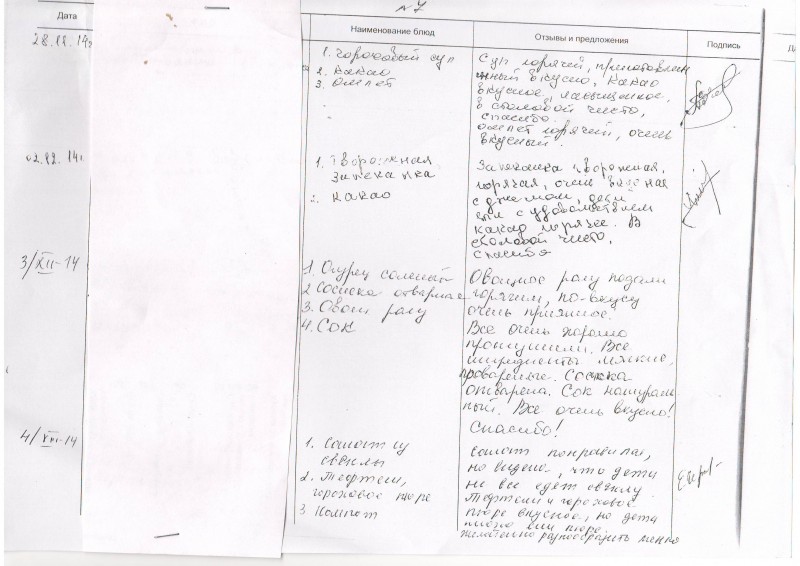 №7
Дата
Наименование блюд
Отзывы и предложения
Подпись
28.12.14г
1. гороховый суп
2. какао
3. омлет
Суп горячий, приготовлен
ный вкусно, какао
вкусное, насыщенное,
в столовой чисто,
спасибо.
омлет горячий, очень
вкусный.
02.12.14г
1. Творожная
запеканка
2. какао
Запеканка творожная,
горячая, очень вкусная
с джемом, дети
ели с удовольствием
какао горячее. В
столовой чисто,
спасибо
3/XII-14
1. Огурец соленый
2 Сосиска отварная
3. Овощ рагу
4. Сок
Овощное рагу подали
горячим, по-вкусу
очень приятное.
Все очень хорошо
протушили. Все
ингредиенты мягкие,
проваренные. Сосиска
отварена. Сок натураль
ный. Все очень вкусно!
Спасибо!
4/XII-14
1. Салат из
свеклы
2. Тефтели,
гороховое пюре
3. Компот
салат понравился,
но видно, что дети
не все едят свеклу.
Тефтели и гороховое
пюре вкусное, но дети
пюре.
желательно разнообразить меню